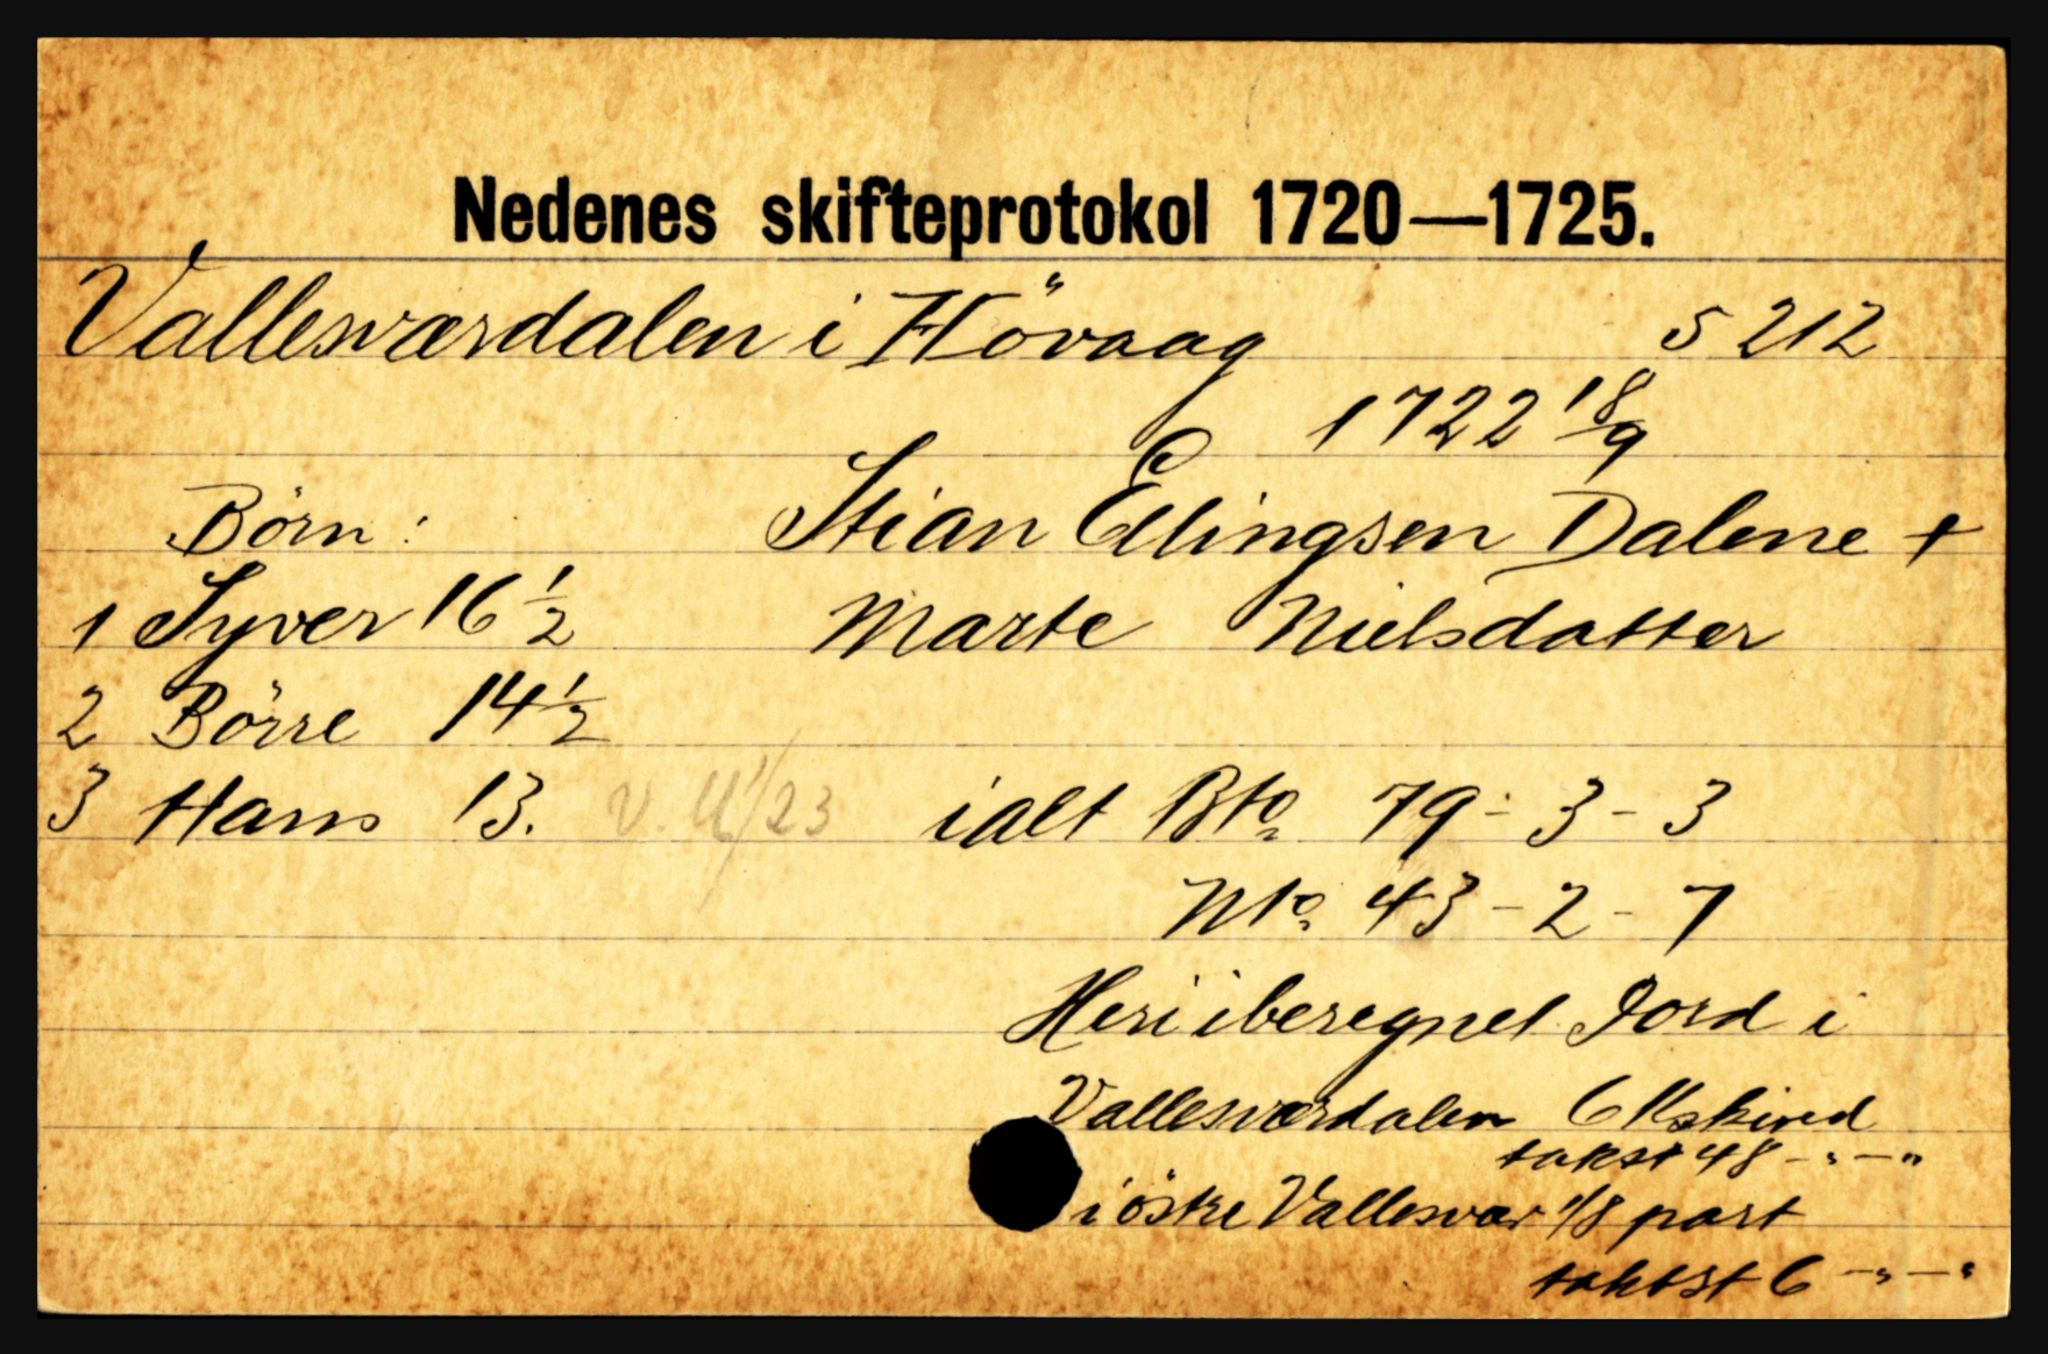 Nedenes skifteprotokol 1720—1725.
Vallesværdalen i Hövaag S 212
1722 18/9
Børn: Stian Ellingsen Dalene +
1 Syver 16 1/2 Marte Nielsdatter
2 Börre 14 1/2
3 Hans 13. V. ialt Bto 79 - 3 - 3
Nto. 43 - 2 - 7
Heri iberegnet Jord i
Vallesværdalen 6 Kskind
takst 48 - " - "
i östre Vallesvær 1/8 part
taktst 6 - " - "